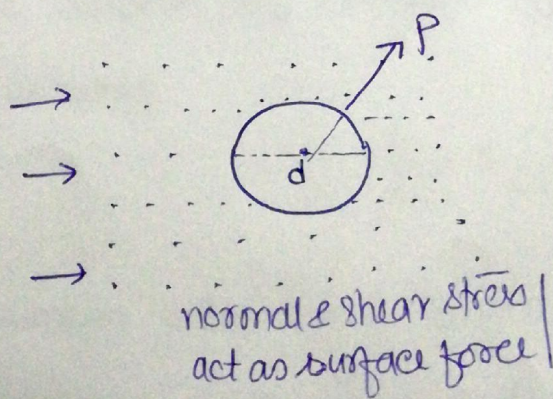 P
d
normal & shear stress
act as surface force